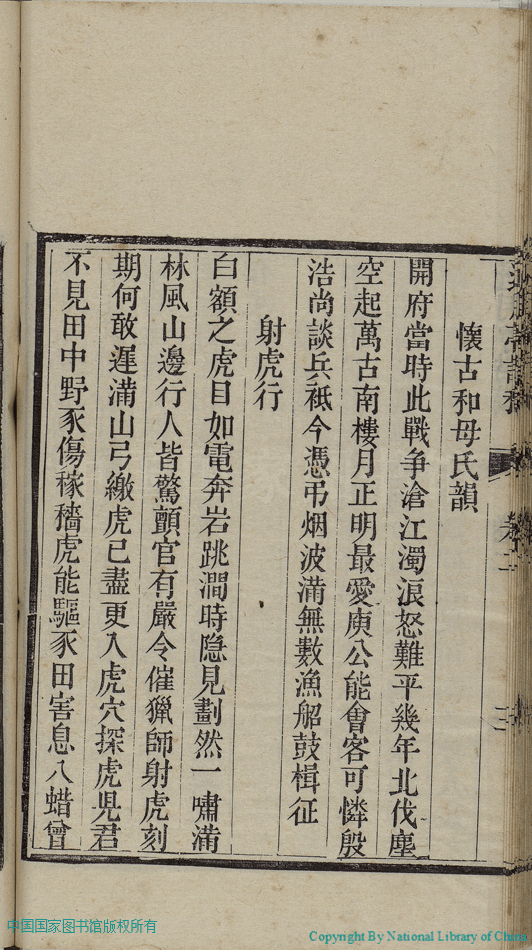 懷古和母氏韻
開府當時此戰争滄江濁浪怒難平幾年北伐塵
空起萬古南樓月正明最愛庾公能會客可憐殷
浩尚談兵祗今憑弔烟波滿無數漁船鼓楫征
射虎行
白額之虎目如電奔岩跳澗時隐見劃然一嘯滿
林風山邊行人皆驚顫官有嚴令催獵師射虎刻
期何敢遲滿山弓繳虎已盡更入虎穴探虎兕君
不見田中野豕傷稼穡虎能驅豕田害息八蜡曾
中国国家图书馆版权所有
Copyright By National Library of China